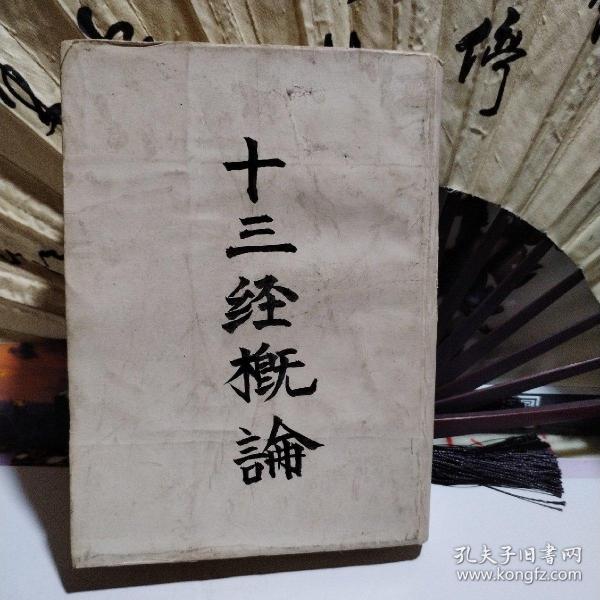 十三经概論
孔夫子旧書网
www.kongfz.com